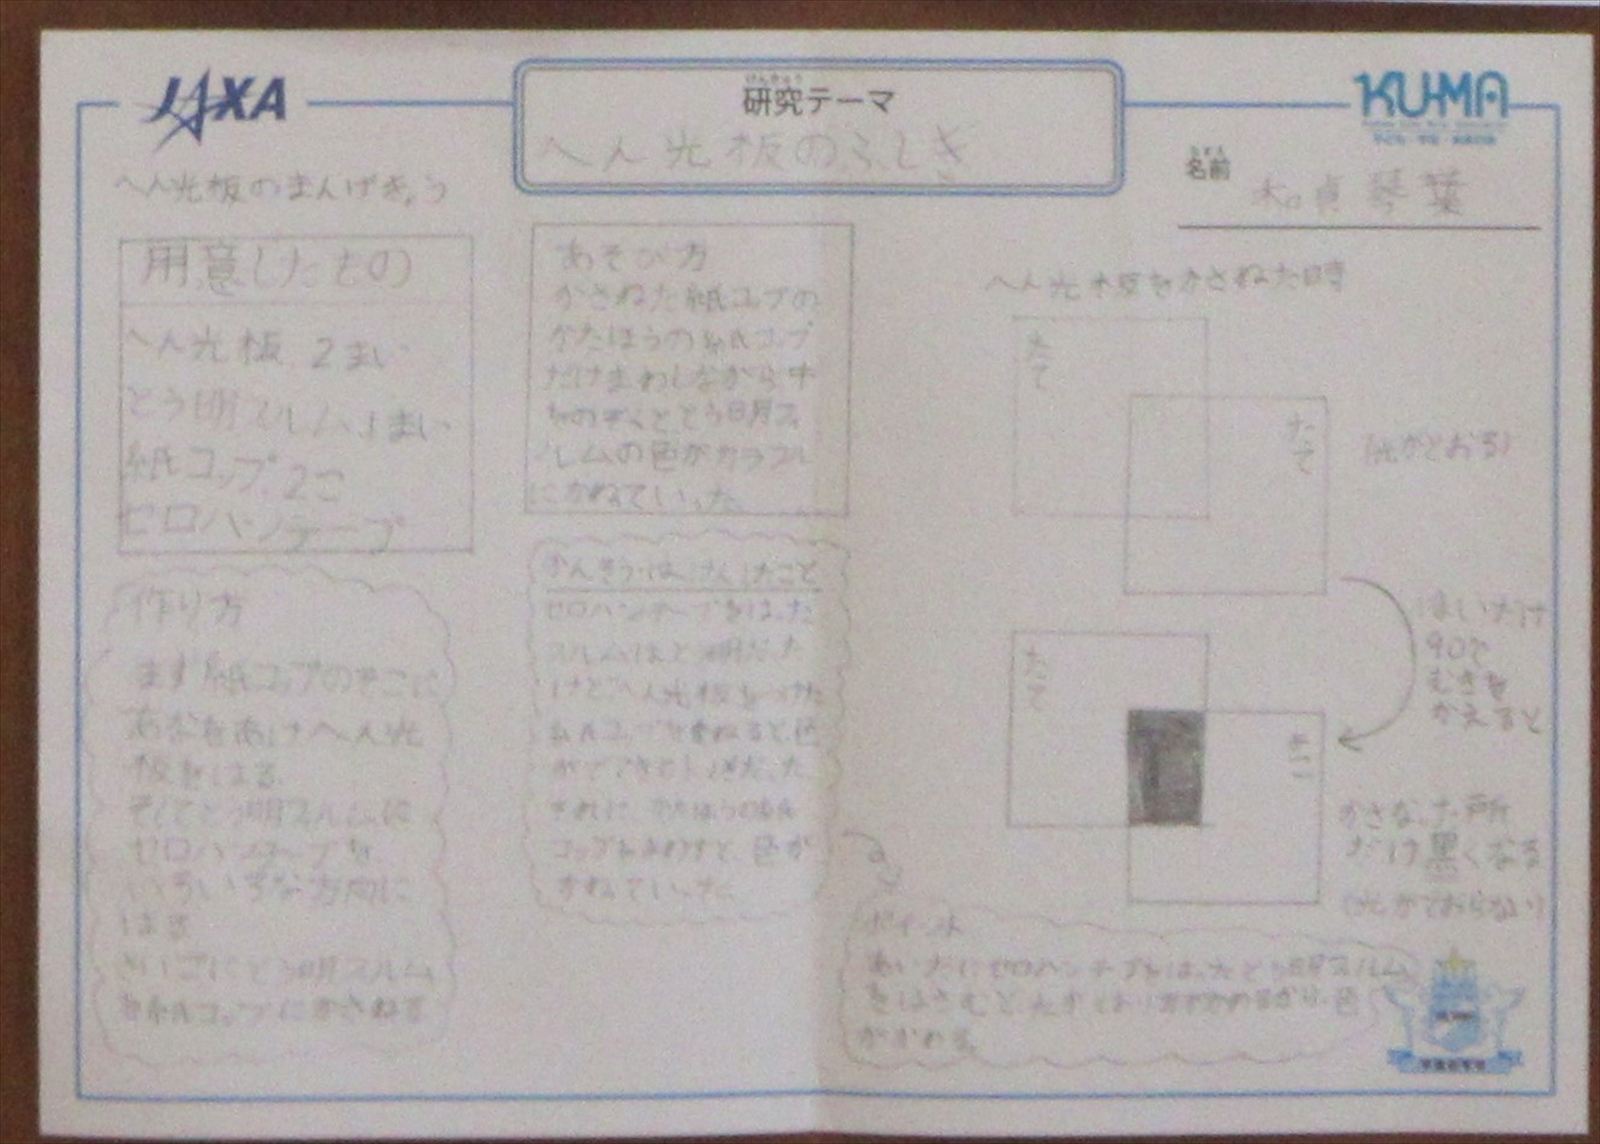 JAXA
けんきゅう
研究テーマ
へん光板のふしぎ
KU-MA
なまえ
名前
和貞琴葉
へん光板のまんげきょう
用意したもの
へん光板 2まい
とう明スルム 1まい
紙コップ 2こ
セロハンテープ
作り方
まず紙コップのそこに
あなをあけへん光
板をはる。
そしてとう明スルムに
セロハンテープを
いろいろな方向に
はる
さいごにとう明スルム
を紙コップにかさねる
あそび方
かさねた紙コップの
かたほうの紙コップ
だけまわしながら
とう明ス
ルムの色がカラフル
にかわていった
セロハンテープをはった
スルムはとう明だった
けどへん光板をつけた
紙コップを重ねると、色
がでてきてふしぎだった
さらに、かたほうの紙
コップをまわすと、色が
かわていった
へん光板をかさねた時
たて
たて
(光がとおる)
90°
むきを
かえると
たて
よこ
かさなった所
だけ黒くなる
(光がとおらない)
ポイント
あいだにセロハンテープをはったとう明スルム
をはさむと、
色
がかわる。